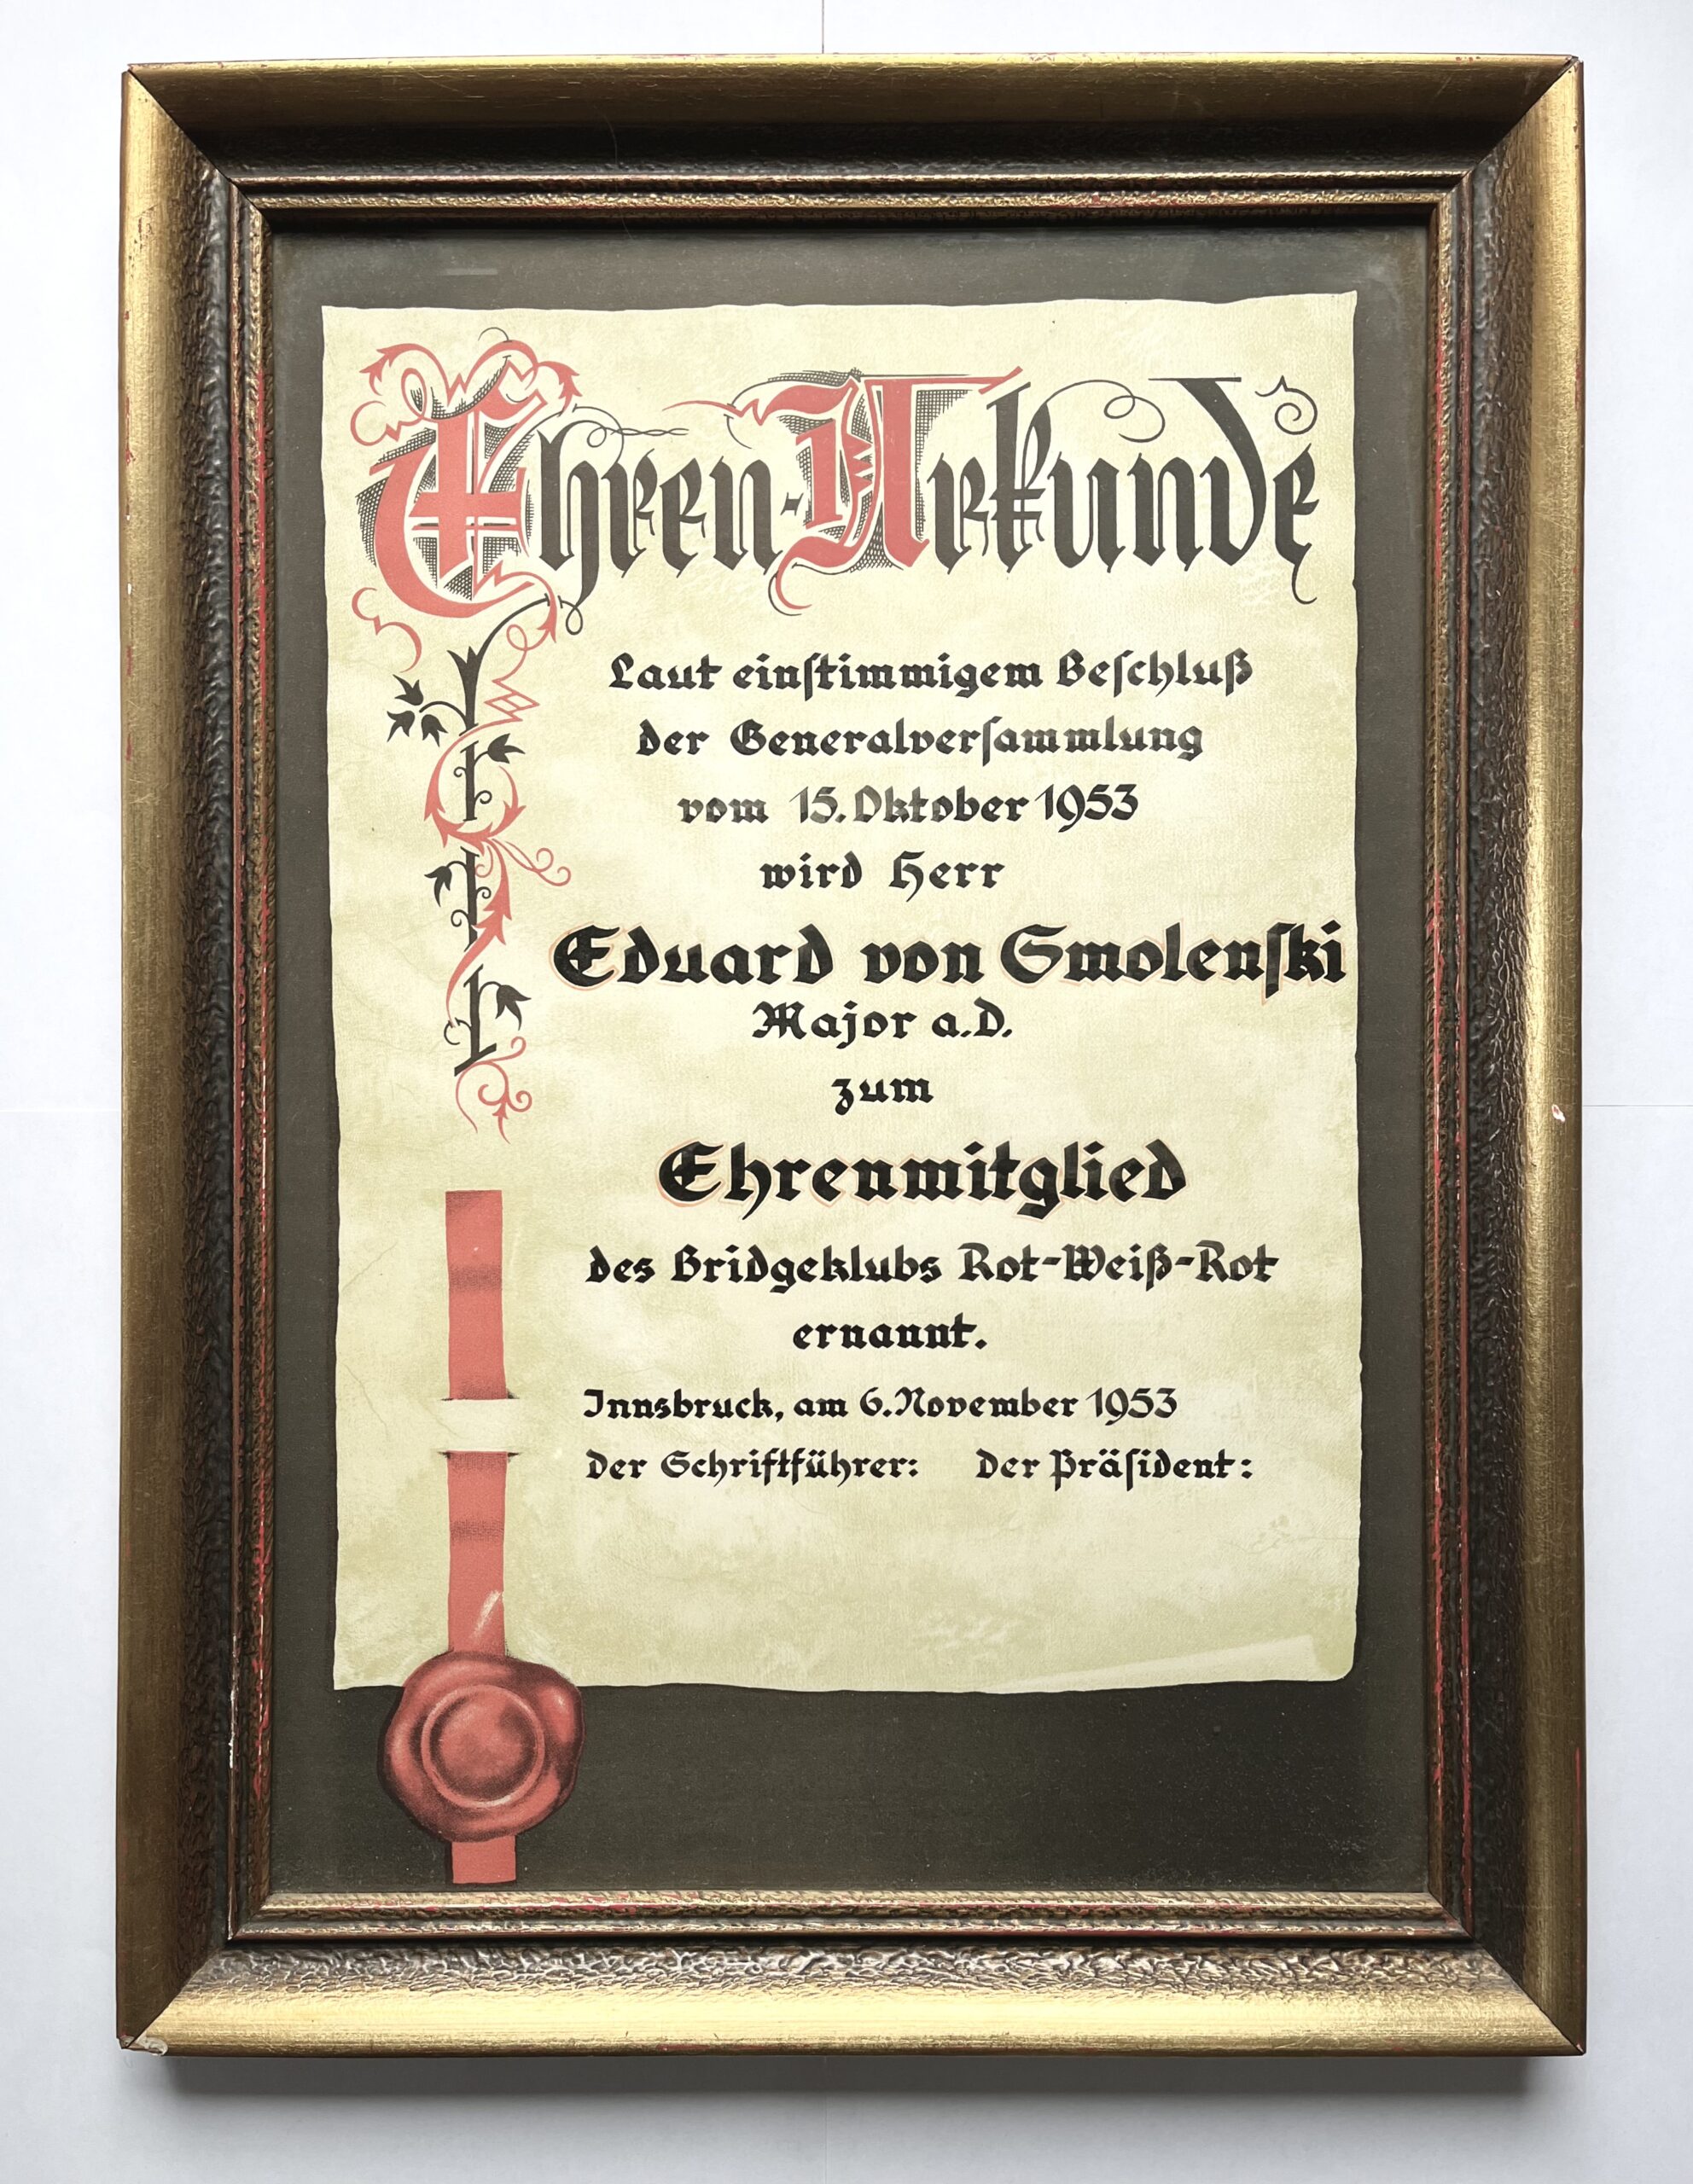 Ehren-Urkunde
Laut einſtimmigem Beſchluß
der Generalverſammlung
vom 15. Oktober 1953
wird Herr
Eduard von Smolenſki
Major a.D.
zum
Ehrenmitglied
des Bridgeklubs Rot-Weiß-Rot
ernannt.
Innsbruck, am 6. November 1953
der Schriftführer: Der Präſident: